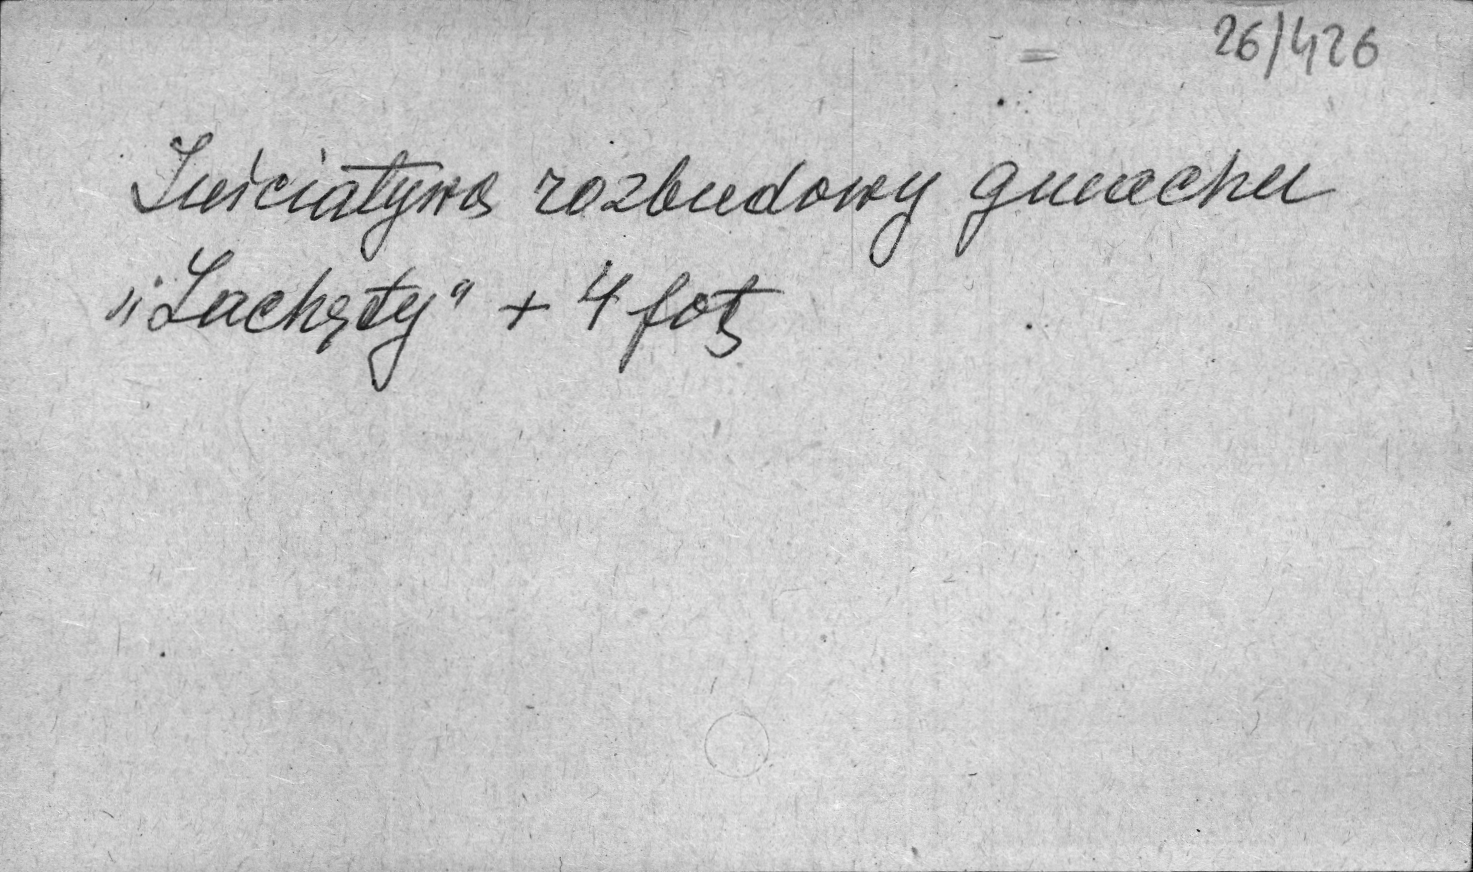 26/426
Inicjatywa rozbudowy gmachu
„Zachęty" + 4 fot